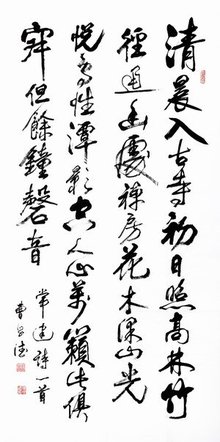 清晨入古寺初日照高林竹
徑通幽處禪房花木深山光
悅鳥性潭影空人心萬籟此俱
寂但餘鐘磬音
常建詩一首